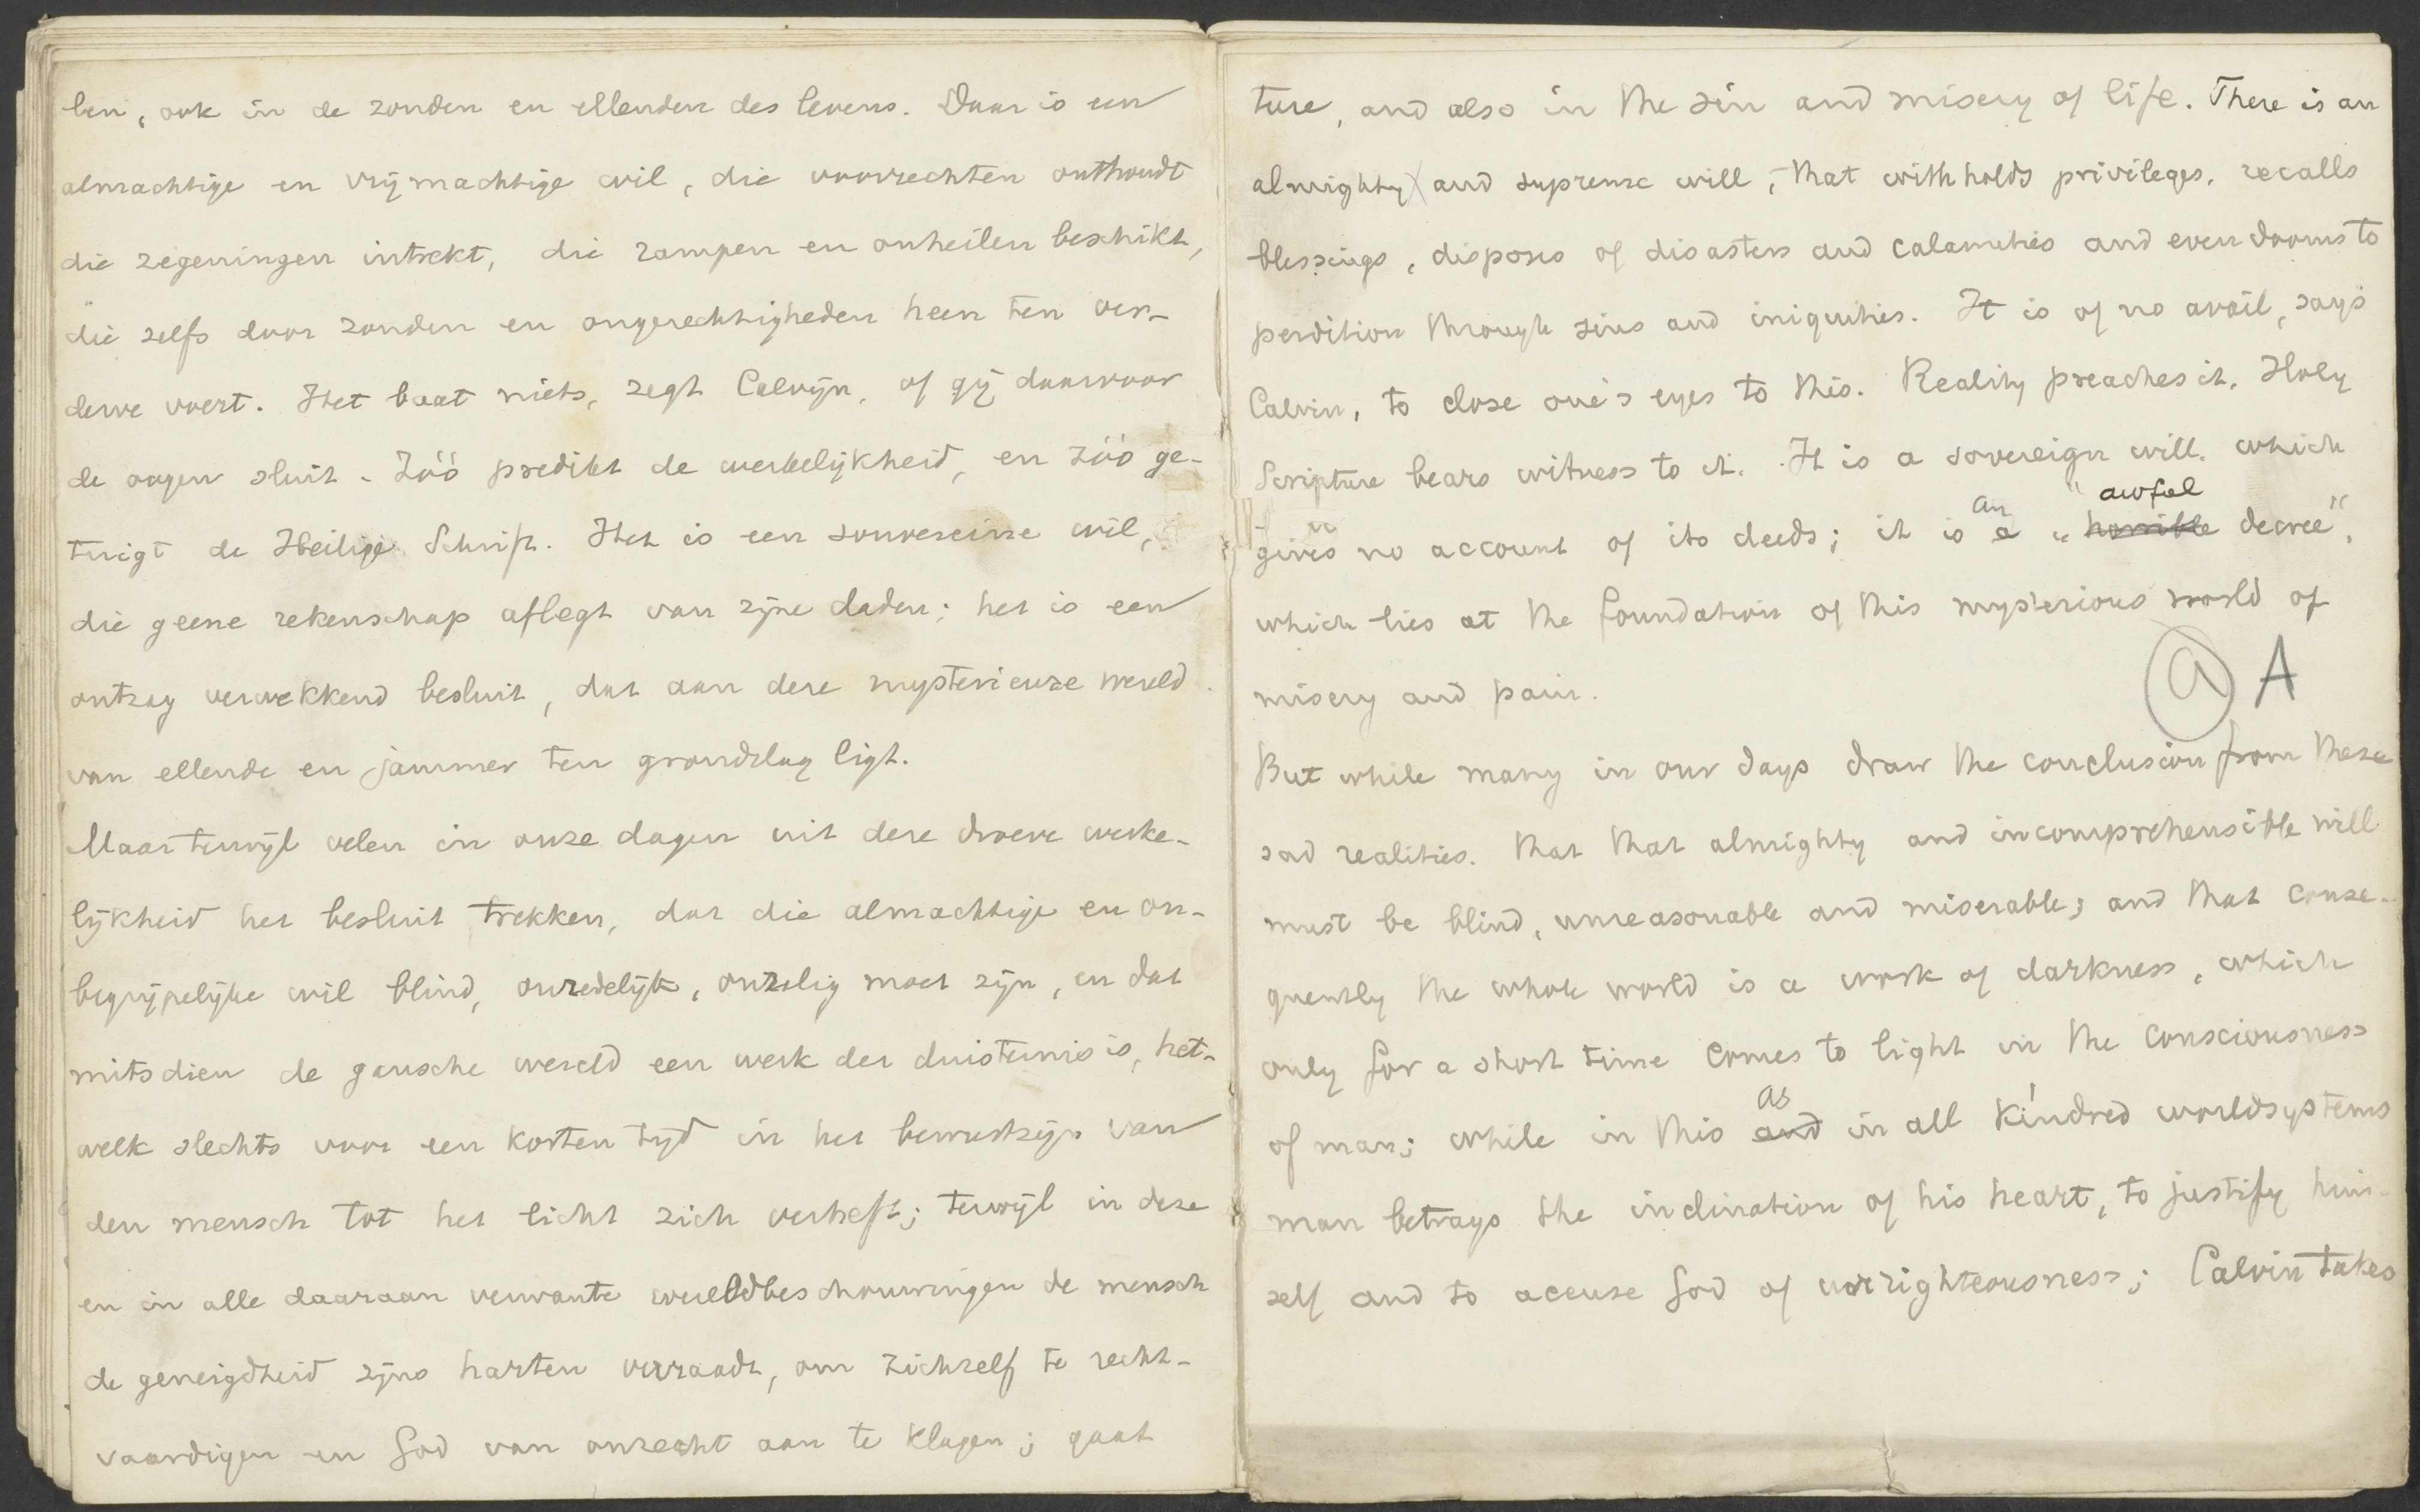 ben, ook in de zonden en ellenden des levens. Daar is een
almachtige en vrijmachtige wil, die voorrechten onthoudt
die zegeningen intrekt, die rampen en onheilen beschikt,
die zelfs door zonden en ongerechtigheden heen ten ver-
derve voert. Het baat niets, zegt Calvijn, of gij daarvoor
de oogen sluit. Zóó predikt de werkelijkheid, en zóó ge-
tuigt de Heilige Schrift. Het is een souvereine wil,
die geene rekenschap aflegt van zijne daden; het is een
ontzag verwekkend besluit, dat aan deze mysterieuze wereld
van ellende en jammer ten grondslag ligt.
Maar terwijl velen in onze dagen uit deze droeve werke-
lijkheid het besluit trekken, dat die almachtige en on-
begrijpelijke wil blind, onredelijk, onzalig moet zijn, en dat
mitsdien de gansche wereld een werk der duisternis is, het-
welk slechts voor een korten tijd in het bewustzijn van
den mensch tot het licht zich verheft; terwijl in deze
en in alle daaraan verwante wereldbeschouwingen de mensch
de geneigdheid zijns harten verraadt, om zichzelf te recht-
vaardigen en God van onrecht aan te klagen; gaat
ture, and also in the sin and misery of life. There is an
almighty and supreme will, that withholds privileges, recalls
blessings, disposes of disasters and calamities and even dooms to
perdition through sins and iniquities. It is of no avail, says
Calvin, to close one's eyes to this. Reality preaches it, Holy
Scripture bears witness to it. It is a sovereign will, which
an " awful
gives no account of its deeds; it is a "horrible decree",
which lies at the foundation of this mysterious world of
misery and pain.
a A
But while many in our days draw the conclusion from these
sad realities, that that almighty and incomprehensible will
must be blind, unreasonable and miserable; and that conse-
quently the whole world is a work of darkness, which
only for a short time comes to light in the consciousness
as
of man; while in this and in all kindred worldsystems
man betrays the inclination of his heart, to justify him-
self and to accuse God of unrighteousness; Calvin takes